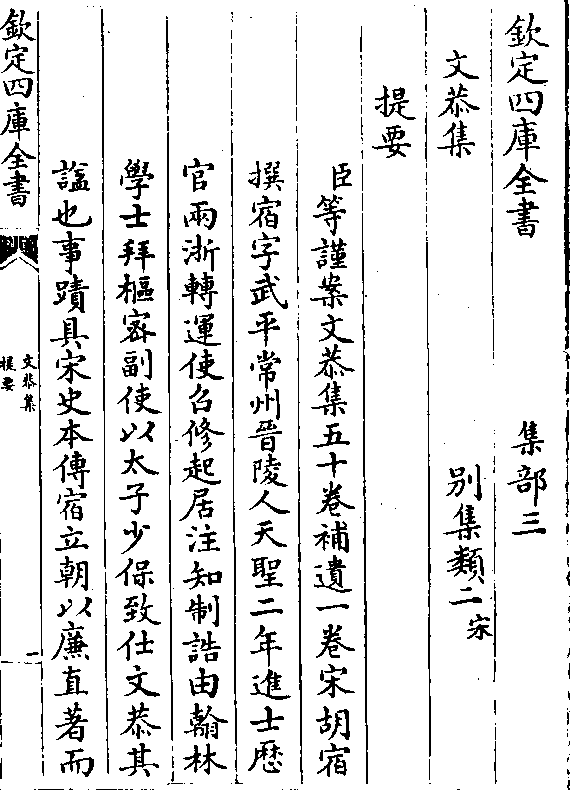 欽定四庫全書 集部三
文恭集 別集類二宋
提要
臣等謹案文恭集五十卷補遺一卷宋胡宿
撰宿字武平常州晉陵人天聖二年進士歴
官兩浙轉運使召修起居注知制誥由翰林
學士拜樞密副使以太子少保致仕文恭其
諡也事蹟具宋史本傳宿立朝以廉直著而
欽定四庫全書
文恭集
提要
一